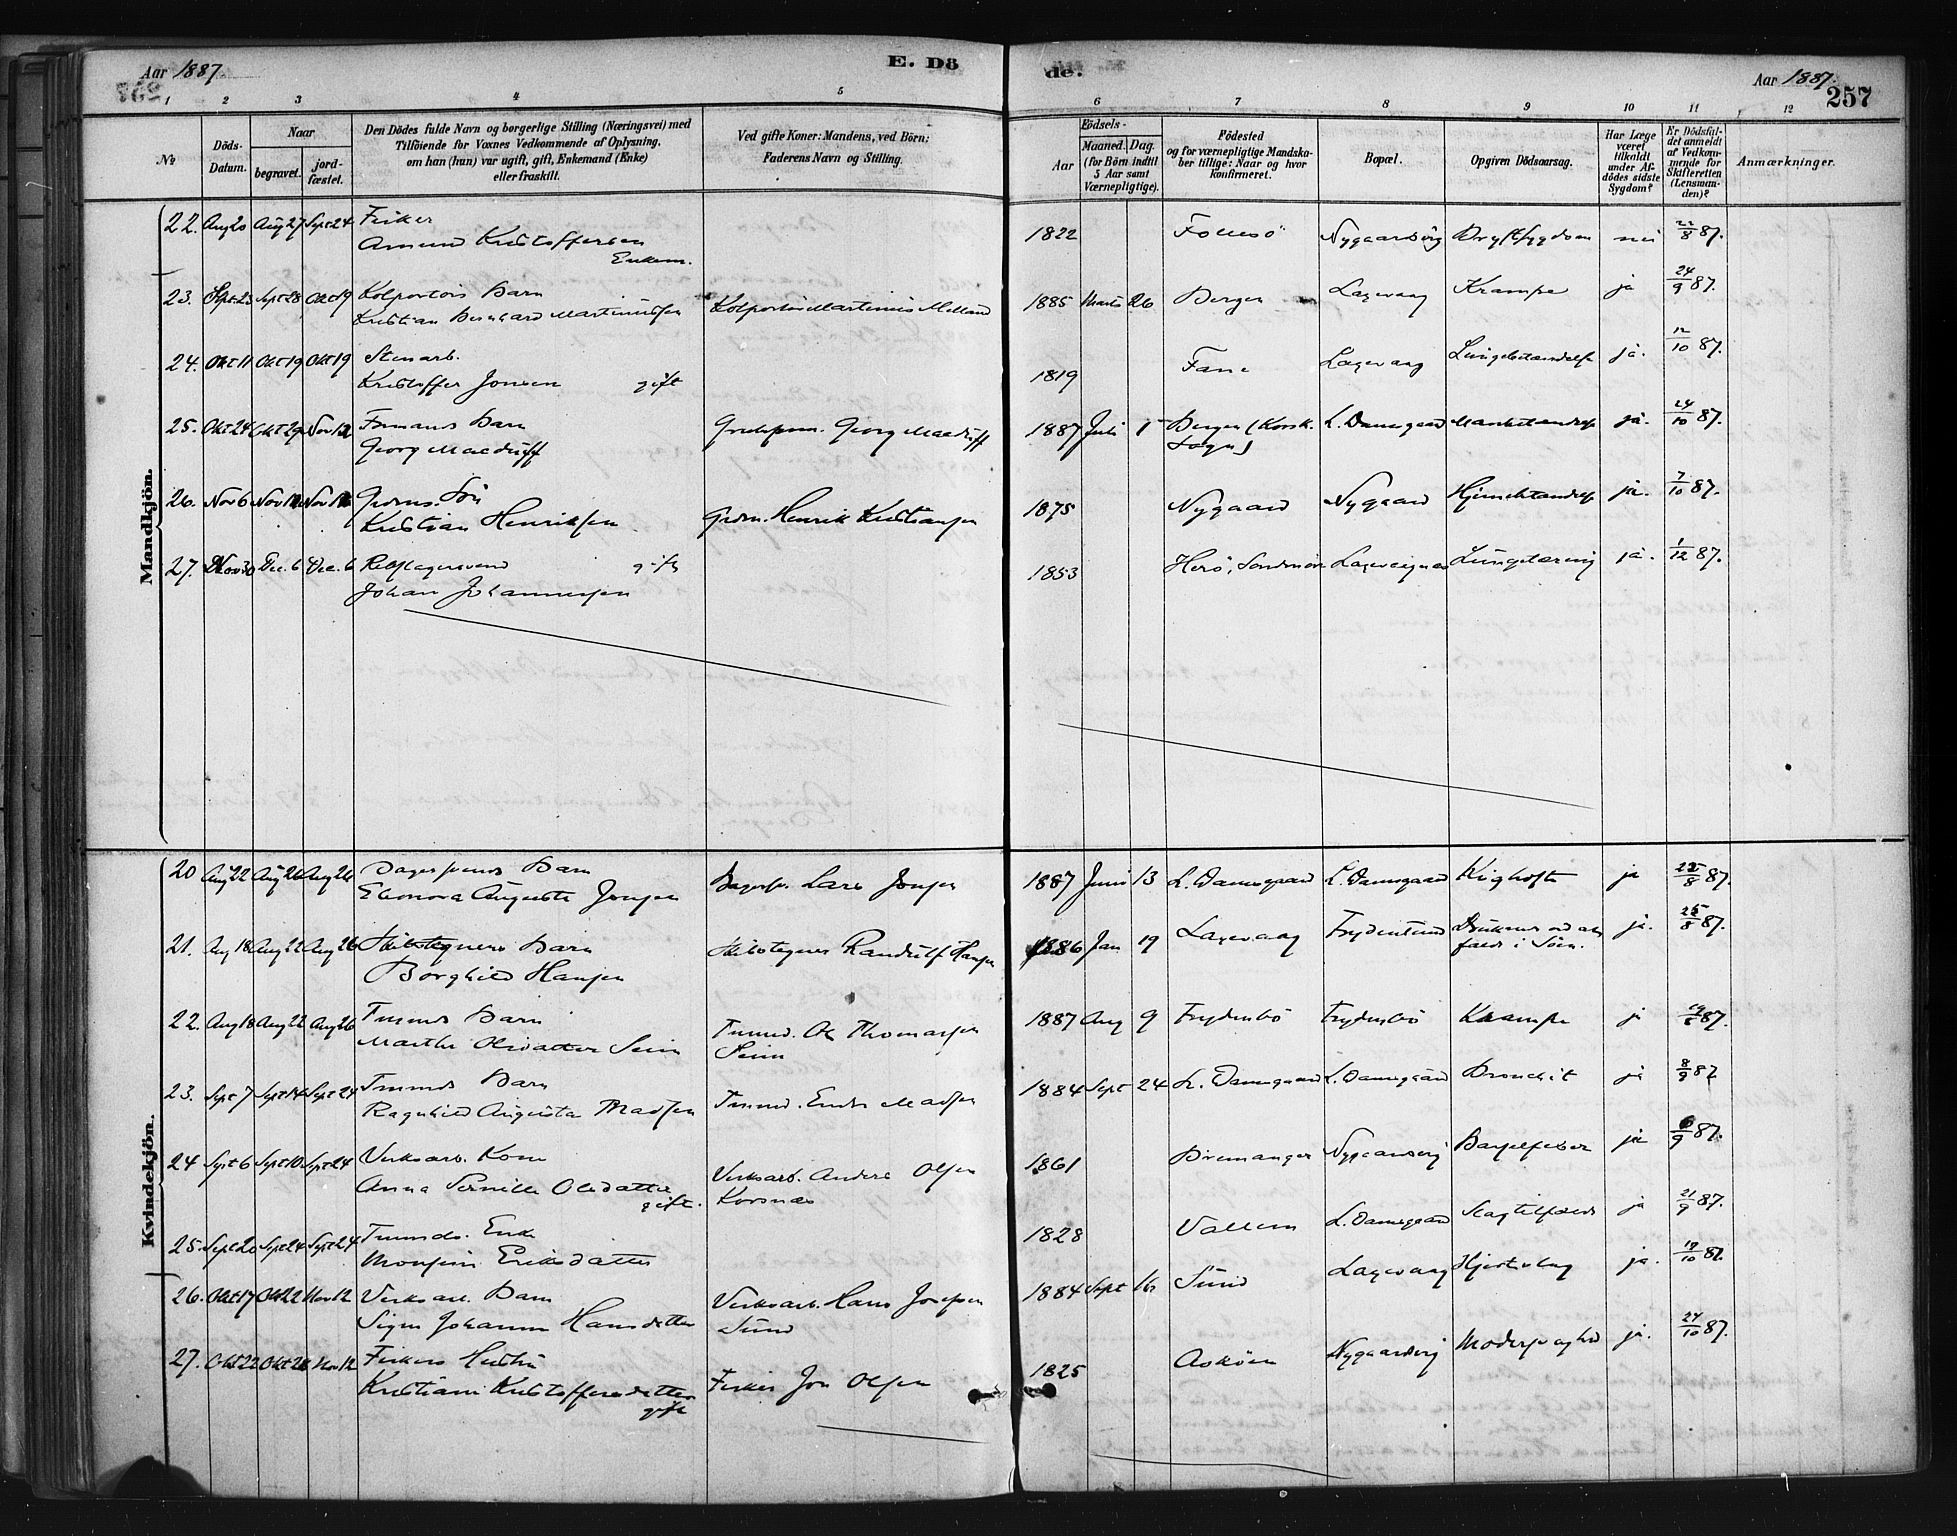 Aar 1887. E. Dö
de. Aar 1887. 257
1 2 3 4 5 6 7 8 9 10 11 12
No
Döds-Datum.
Naar
begravet. jord-fæstet.
Den Dödes fulde Navn og borgerlige Stilling (Næringsvei) med
Tilföiende for Voxnes Vedkommende af Oplysning,
om han (hun) var ugift, gift, Enkemand (Enke)
eller fraskilt.
Ved gifte Koner: Mandens, ved Börn:
Faderens Navn og Stilling.
Födsels-
Aar Maaned. Dag.
(for Börn indtil
5 Aar samt
Værnepligtige).
Födested
og for værnepligtige Mandska-
ber tillige: Naar og hvor
konfirmeret.
Bopæl.
Opgiven Dödsaarsag.
Har Læge
været
tilkaldt
under Af-
dödes sidste
Sygdom?
Er Dödsfal-
det anmeldt
af Vedkom-
mende for
Skifteretten
(Lensman-
den)?
Anmærkninger.
Mandkjön.
22. Aug 20 Aug 27 Sept 24 Fisker 1822 Follesö Nygaardsvig Brystsygdom nei 22/8 87.
Amund Kristoffersen
Enkem.
23. Sept 23 Sept 28 Okt 19 Kolportörs Barn Kolportör Martinius Melland 1885 Marts 26 Bergen Laxevaag Krampe ja 24/9 87.
Kristian Bernhard Martiniussen
24. Okt 11 Okt 19 Okt 19 Stenarb. 1819 Fane Laxevaag Lungebetændelse ja. 12/10 87.
Kristoffer Jonsen gift
25. Okt 24 Okt 29 Nov 12 Formands Barn Georg Macduff 1887 Juli 1 Bergen (Korsk. L. Damsgaard ja. 24/10 87.
Georg Macduff Sogn)
26. Nov 6 Nov 12 Nov 12 Grdms. Sön Grdm. Henrik Kristiansen 1875 Nygaard Nygaard Hjernebetændelse ja. 7/10 87.
Kristian Henriksen
27. Nov 30 Dec. 6 Dec. 6 Rebslagersvend gift 1853 Herö, Söndmör Lungetæring ja. 1/12 87.
Johan Johannessen
Kvindekjön.
20 Aug 22 Aug 26 Aug 26 Bagersvends Barn Bagersv. Lars Jonsen 1887 Juni 13 L. Damsgaard L. Damsgaard Kighoste ja 87.
Eleonora Augusta Jonsen
21. Aug 18 Aug 22 Aug 26 Barn Randulf Hansen 1886 Jan 19 Laxevaag Frydenlund Druknet ved at ja. 87.
Borghild Hansen faldt i Söen.
22. Aug 18 Aug 22 Aug 26 Tmmds Barn Tmmd. Ole Thomassen 1887 Aug 9 Frydenbö Frydenbö Krampe ja 87.
Marthe Olsdatter Seim Seim
23. Sept 7 Sept 14 Sept 24 Tmmds Barn Tmmd. Endre Madsen 1884 Sept 24 L. Damsgaard L. Damsgaard Bronchit ja 8/9 87.
Ragnhild Augusta Madsen
24 Sept 6 Sept 10 Sept 24 Verksarb. Kone Verksarb. Anders Olsen 1861 Bremanger Nygaardsvig Barselfeber ja 6/9 87.
Anna Pernille Olsdatter Korsnæs
gift.
25. Sept 20 Sept 24 Sept 24 Tmmds. Enke 1828 L. Damsgaard Slagtilfælde ja 21/9 87.
Monsine Eriksdatter
26. Okt 17 Okt 22 Nov 12 Verksarb. Barn Verksarb. Hans Josefsen 1884 Sept 16 Sund Laxevaag Hjerteslag ja. 19/10 87.
Signe Johanne Hansdatter Sund
27. Okt 22 Okt 26 Nov 12 Fiskers Hustru Fisker Jon Olsen 1825 Asköen Nygaardsvig ja. 24/10 87.
Kristiane Kristoffersdatter
gift